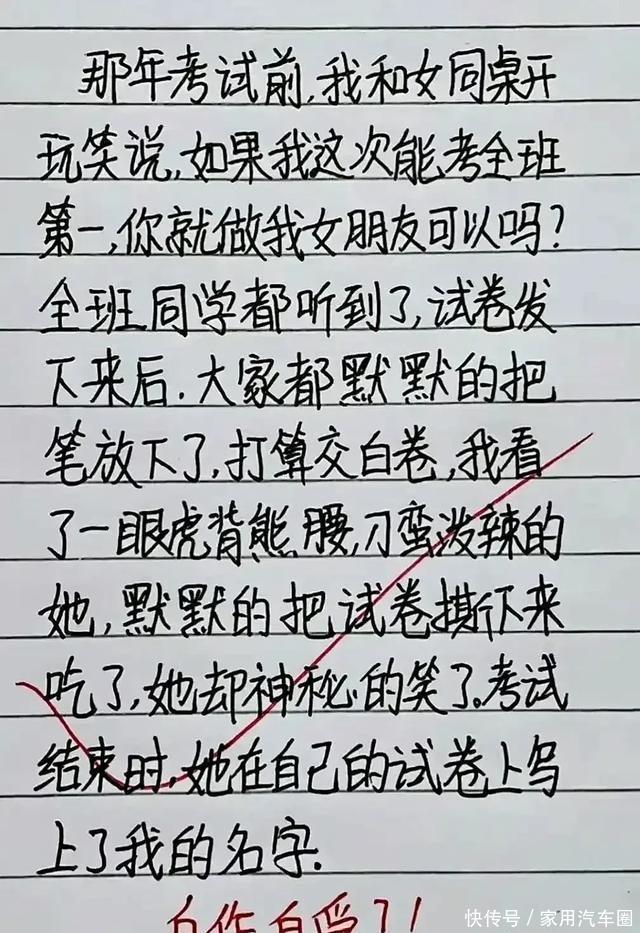 那年考试前,我和女同桌开
玩笑说,如果我这次能考全班
第一,你就做我女朋友可以吗?
全班同学都听到了,试卷发
下来后.大家都默默的把
笔放下了,打算交白卷,我看
了一眼虎背熊腰,刁蛮泼辣的
她,默默的把试卷撕下来
吃了,她却神秘的笑了.考试
结束时,她在自己的试卷上写
上了我的名字.
自作自受了!
快传号/家用汽车圈